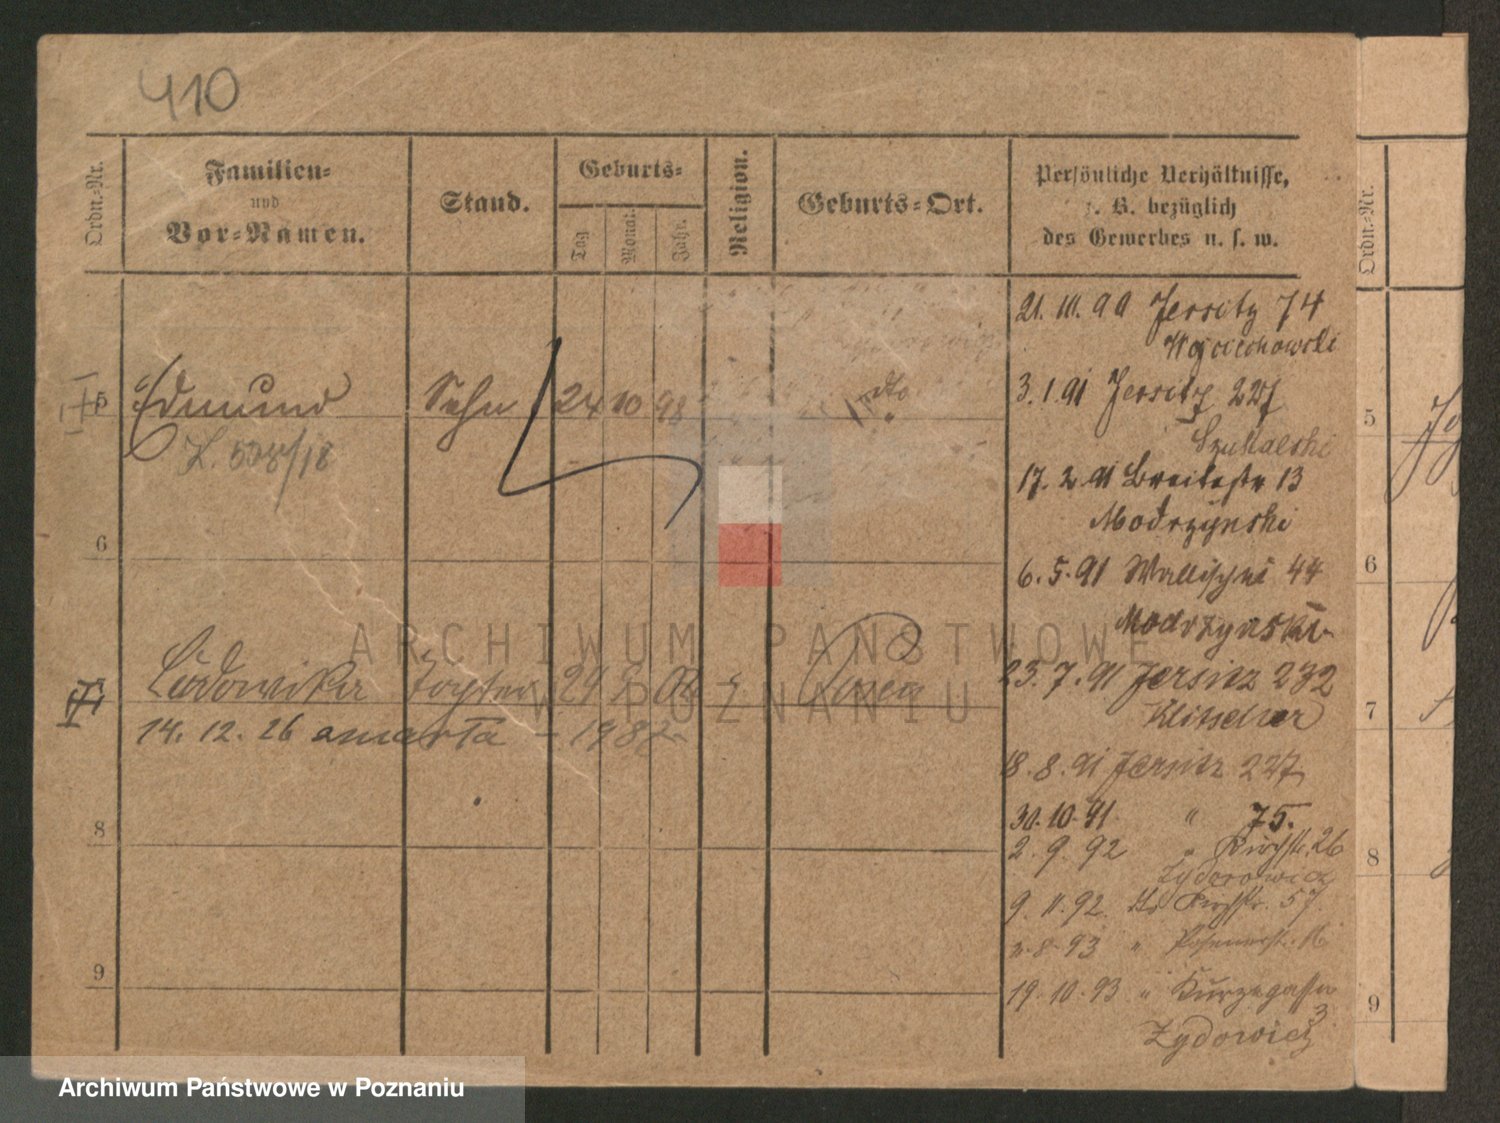 410
Ordn.=Nr.
Familien=
und
Vor=Namen.
Stand.
Geburts=
Tag
Monat.
Jahr.
Religion.
Geburts=Ort.
Persönliche Verhältnisse,
z. B. bezüglich
des Gewerbes u. s. w.
Ordn.=Nr.
21. 10. 90 Jersitz 74
Wojciechowski
5 Edmund Sohn 24 10 98 dto
3. 1. 91 Jersitz 227
Szukalski
17. 2. 91 Breitestr 13
Modrzynski
6
6. 5. 91 Wallischei 44
Modrzynski
Ludowika Tochter 24 Posen
14. 12. 26 zmarła
23. 7. 91 Jersitz 232
Klitscher
18. 8. 91 Jersitz 227
8
30. 10. 91 " 75.
2. 9. 92 " Kirchstr. 26
Zydorowicz
9. 11. 92 Kirchstr. 57
8. 93 " Posenerstr. 16
9
19. 10. 93 " Kurzegasse
3
Zydowicz
5
6
7
8
9
ARCHIWUM PAŃSTWOWE
W POZNANIU
Archiwum Państwowe w Poznaniu